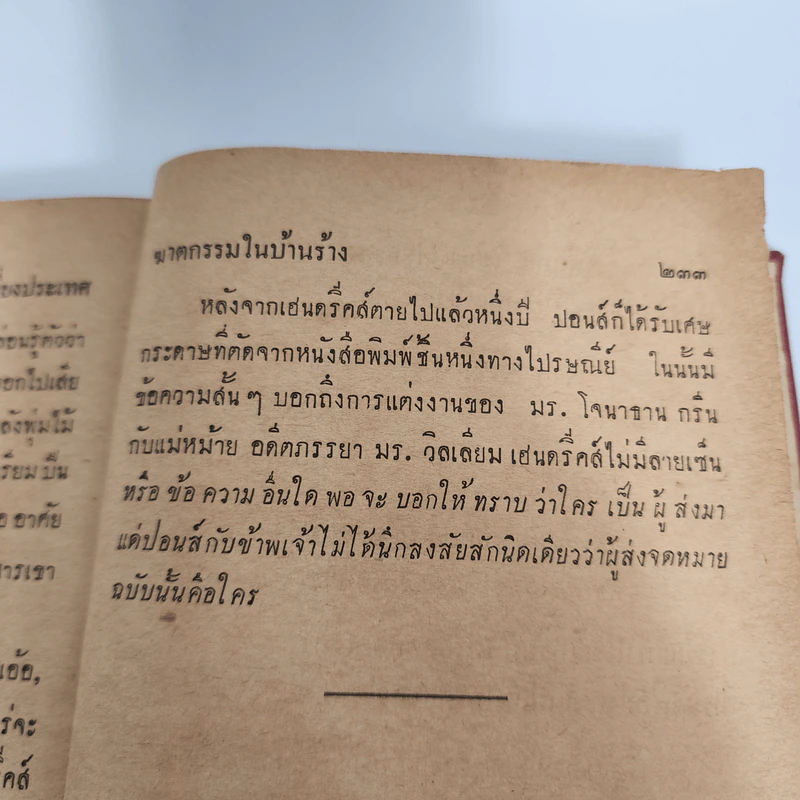 ยงประเทศ
่อนรู้ตัวว่า
อกไปเสีย
ลังพุ่มไม้
รียม ปืน
อ อาศัย
การเขา
นอ้อ,
ร่จะ
คส์
ฆาตกรรมในบ้านร้าง
๒๓๓
หลังจากเฮนดริ๊คส์ตายไปแล้วหนึ่งปี ปอนส์ก็ได้รับเศษ
กระดาษที่ตัดจากหนังสือพิมพ์ชิ้นหนึ่งทางไปรษณีย์ ในนั้นมี
ข้อความสั้น ๆ บอกถึงการแต่งงานของ มร. โจนาธาน กรีน
กับแม่หม้าย อดีตภรรยา มร. วิลเลี่ยม เฮนดริ๊คส์ไม่มีลายเซ็น
หรือ ข้อ ความ อื่นใด พอ จะ บอกให้ ทราบ ว่าใคร เป็น ผู้ ส่งมา
แต่ปอนส์กับข้าพเจ้าไม่ได้นึกสงสัยสักนิดเดียวว่าผู้ส่งจดหมาย
ฉบับนั้นคือใคร